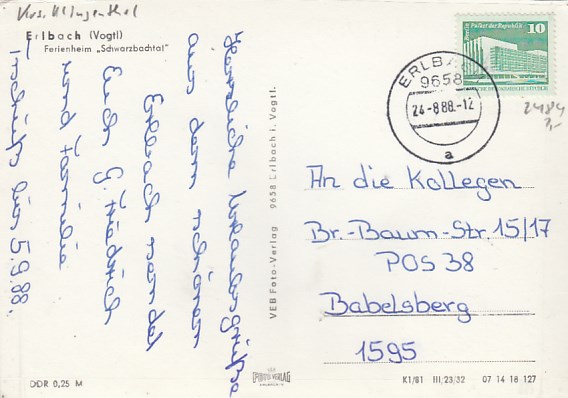 Krs. Klingenthal
Erlbach (Vogtl)
Ferienheim „Schwarzbachtal"
Herzliche Urlaubsgrüße
aus dem schönen
Erlbach sendet
Euch G. Friedrich
und Familie
Tschüß bis 5.9.88.
VEB Foto-Verlag 9658 Erlbach i. Vogtl.
Berlin, Palast der Republik
10
DEUTSCHE DEMOKRATISCHE REPUBLIK
ERLBACH
9658
24.-8.88.-12
a
2484
2,-
An die Kollegen
Br.-Baum-Str. 15/17
POS 38
Babelsberg
1595
DDR 0,25 M
FOTO VERLAG
K1/81 III/23/32 07 14 18 127